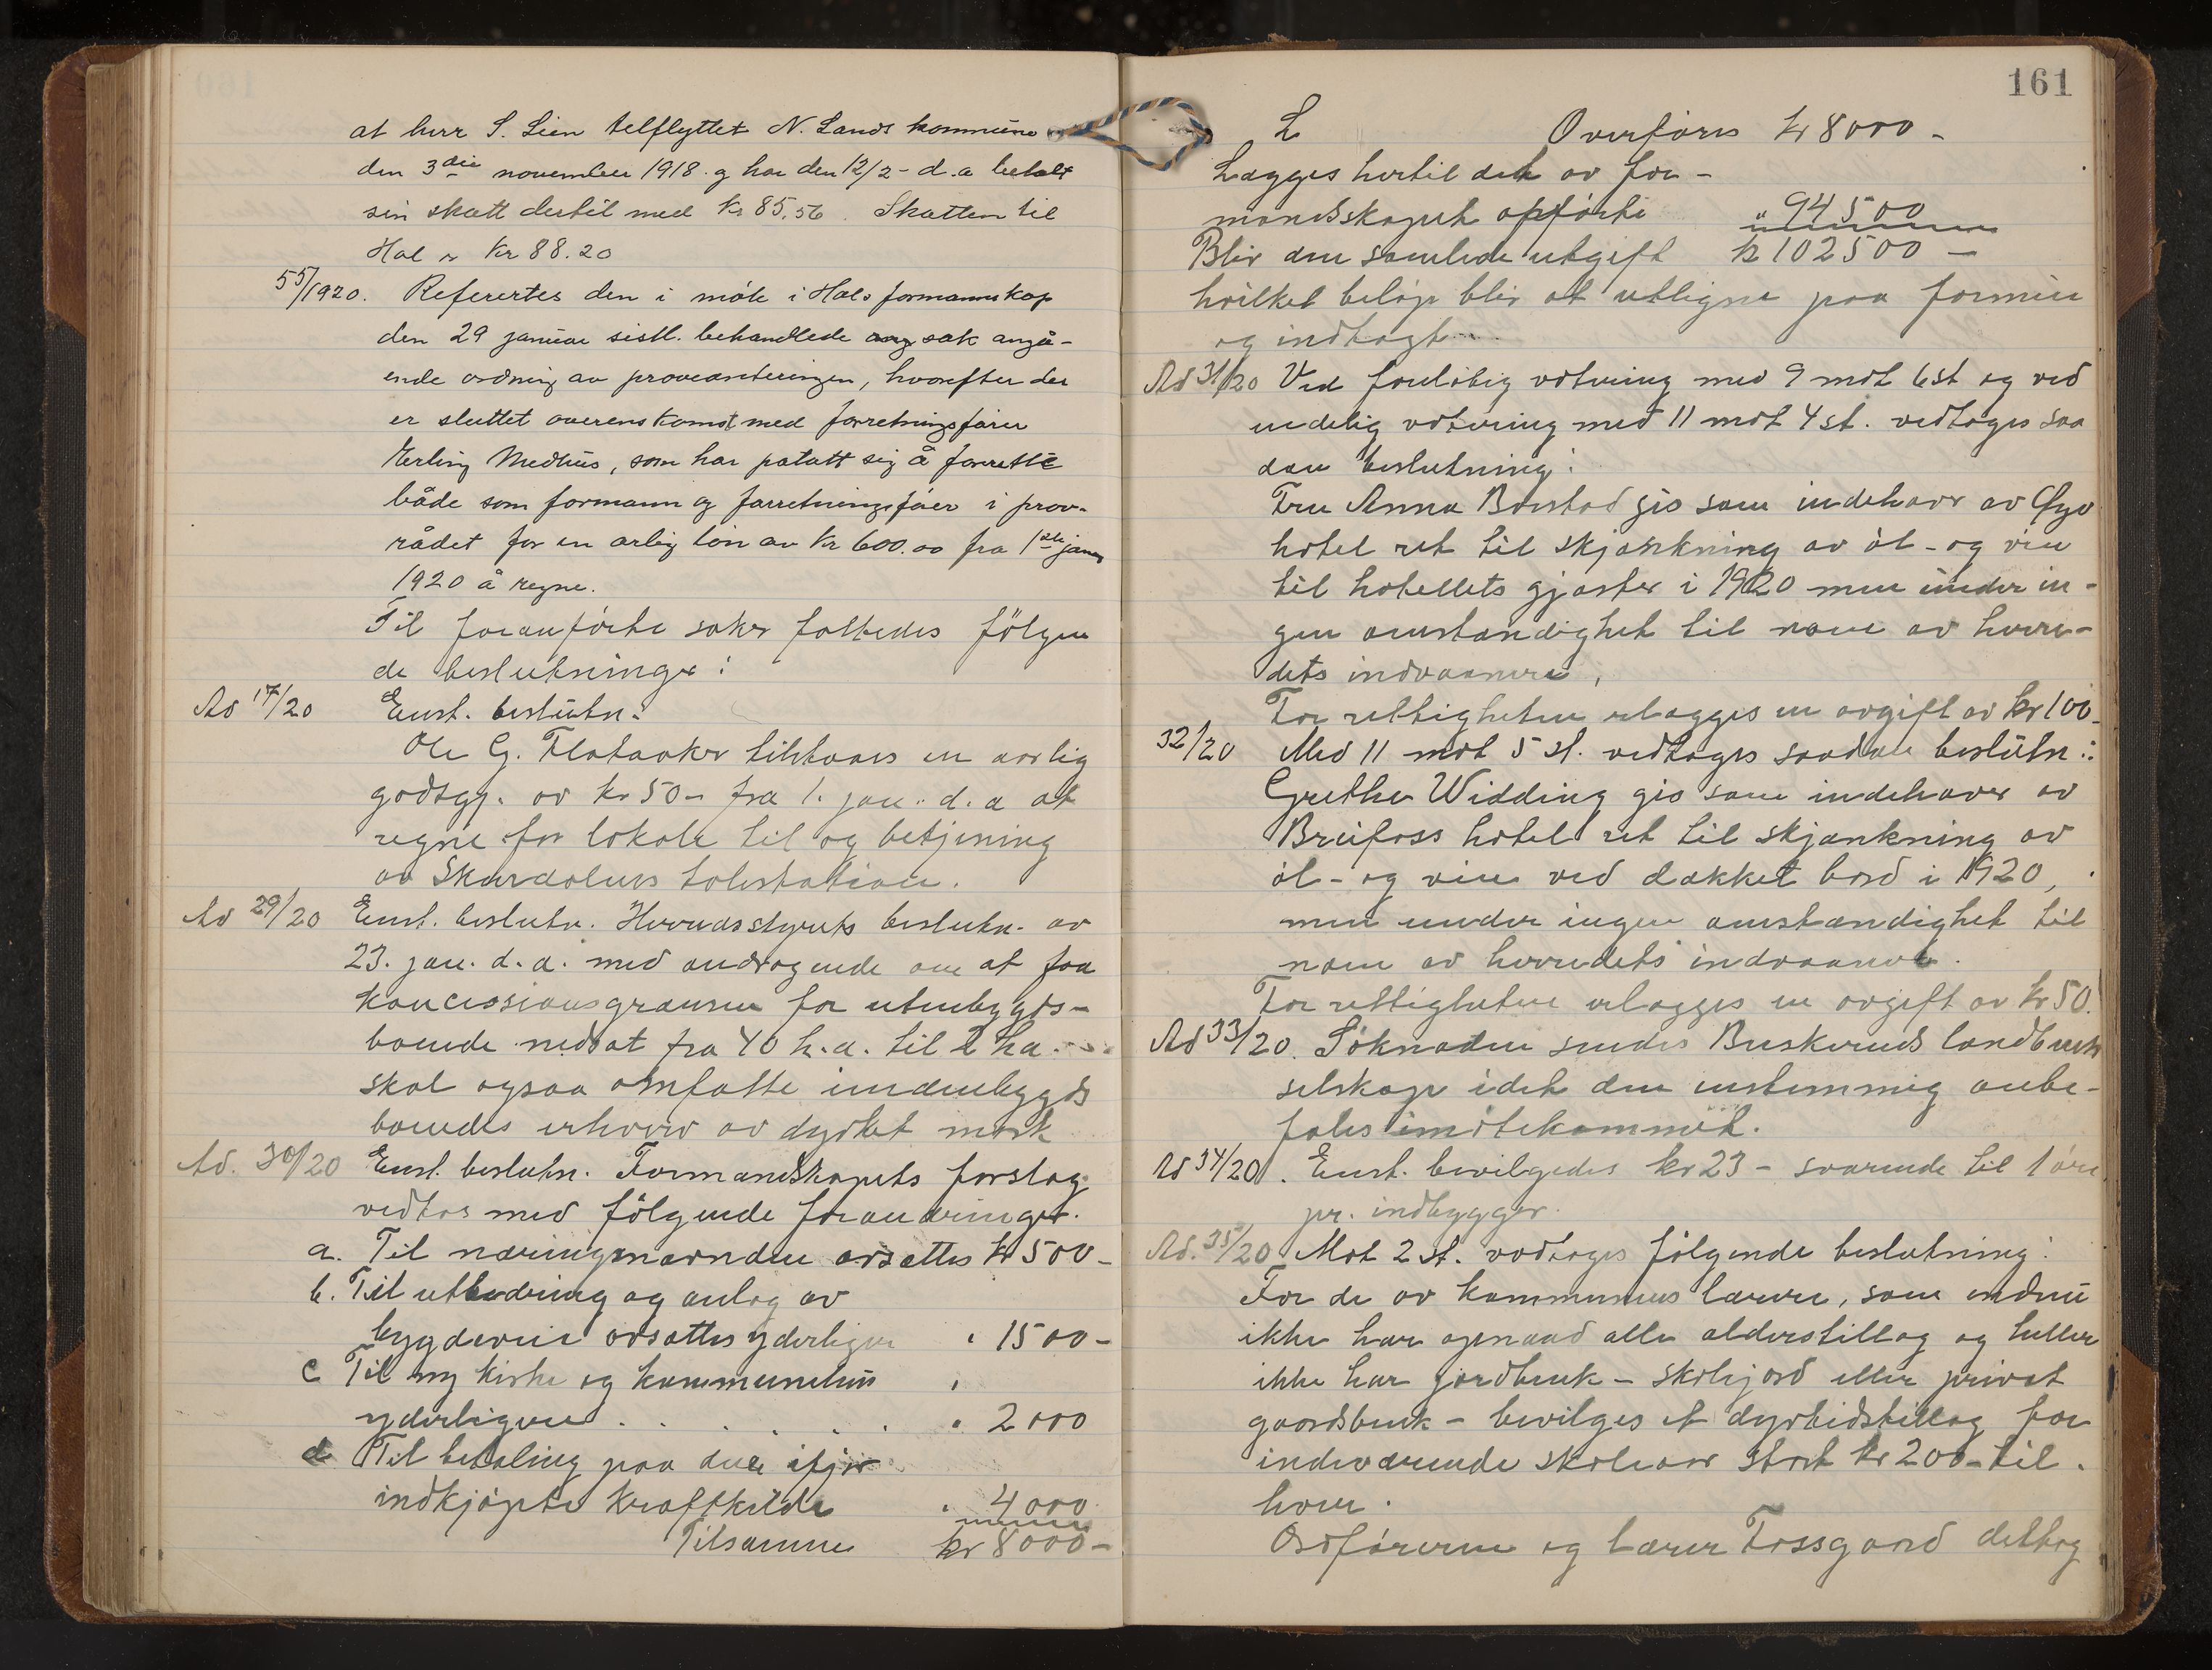 at herr S. Lien telflyttet N. Lands kommune
den 3die november 1918 og har den 12/2 - d.a betalt
sin skatt dertil med kr 85,56. Skatten til
Hol er kr 88.20
55/1920. Referertes den i møte i Hols formannskap
den 29 januar sistl. behandlede sak angå-
ende ordning av provianteringen, hvorefter der
er sluttet overenskomst med forretningsfører
Erling Medhus, som har patatt sig å forrette
både som formann og forretningsfører i prov.
rådet for en årlig lön av kr 600.00 fra 1ste januar
1920 å regne.
Til foranførte saker fattedes følgen
de beslutninger:
Ad 17/20 Enst. beslutn:
Ole G. Flataaker tilstaaes en aarlig
godtgj. av kr 50- fra 1. jan. d.a at
regne for lokale til og betjening
av Skurdalens telestation.
Ad 29/20 Enst. beslutn. Herredsstyrets beslutn. av
23. jan. d.a. med andragende om at faa
koncessionsgrænsen for utenbygds-
boende nedsat fra 40 h.a. til 2 ha.
skal ogsaa omfatte indenbygds
boendes erhverv av dyrket mark
Ad. 30/20 Enst. beslutn. Formandskapets forslag
vedtas med følgende forandringer.
a. Til næringsnævnden avsættes kr 500-
b. Til utbedring og anlæg av
bygdeveie avsættes yderligere " 1500-
c Til ny kirke og kommunehus "
yderligere . . . . . " 2000
d Til betaling paa den ifjor
indkjøpte kraftkilde " 4000
Tilsammen kr 8000-
161
L Overføres kr 8000-
Lægges hertil det av for-
mandskapet opførte " 94500
Blir den samlede utgift kr 102500 -
hvilket beløp blir at utligne paa formue
og indtægt
Ad 31/20 Ved foreløbig votering med 9 mot 6 st og ved
endelig votering med 11 mot 4 st. vedtoges saa
dan beslutning:
Fru Anna Børstad gis som indehaver av Øyo
hotel ret til skjænkning av øl- og vin
til hotellets gjæster i 1920 men under in-
gen omstændighet til noen av herre-
dets indvaanere,
For rettigheten erlægges en avgift av kr 100-
32/20 Med 11 mot 5 st. vedtoges saadan beslutn:
Grethe Widding gis som indehaver av
Breifoss hotel ret til skjænkning av
øl- og vin ved dækket bord i 1920,
men under ingen omstændighet til
noen av herredets indvaanere.
For rettigheten erlægges en avgift av kr 50.
Ad 33/20. Søknaden sendes Buskeruds landbruks
selskap idet den enstemmig anbe-
fales imøtekommet.
Ad 34/20. Enst. bevilgedes kr 23 - svarende til 1 øre
pr. indbygger.
Ad. 35/20 Mot 2 st. vedtoges følgende beslutning:
For de av kommunens lærere, som endnu
ikke har opnaad alle alderstillæg og heller
ikke har jordbruk - skolejord eller privat
gaardsbruk - bevilges et dyrtidstillæg for
indeværende skoleaar stort kr 200- til
hver.
Ordføreren og lærer Fossgaard deltog